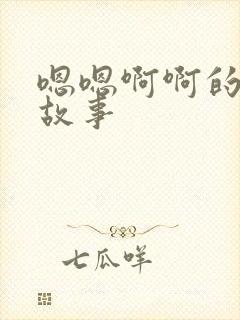 嗯嗯啊啊的
故事
七瓜咩